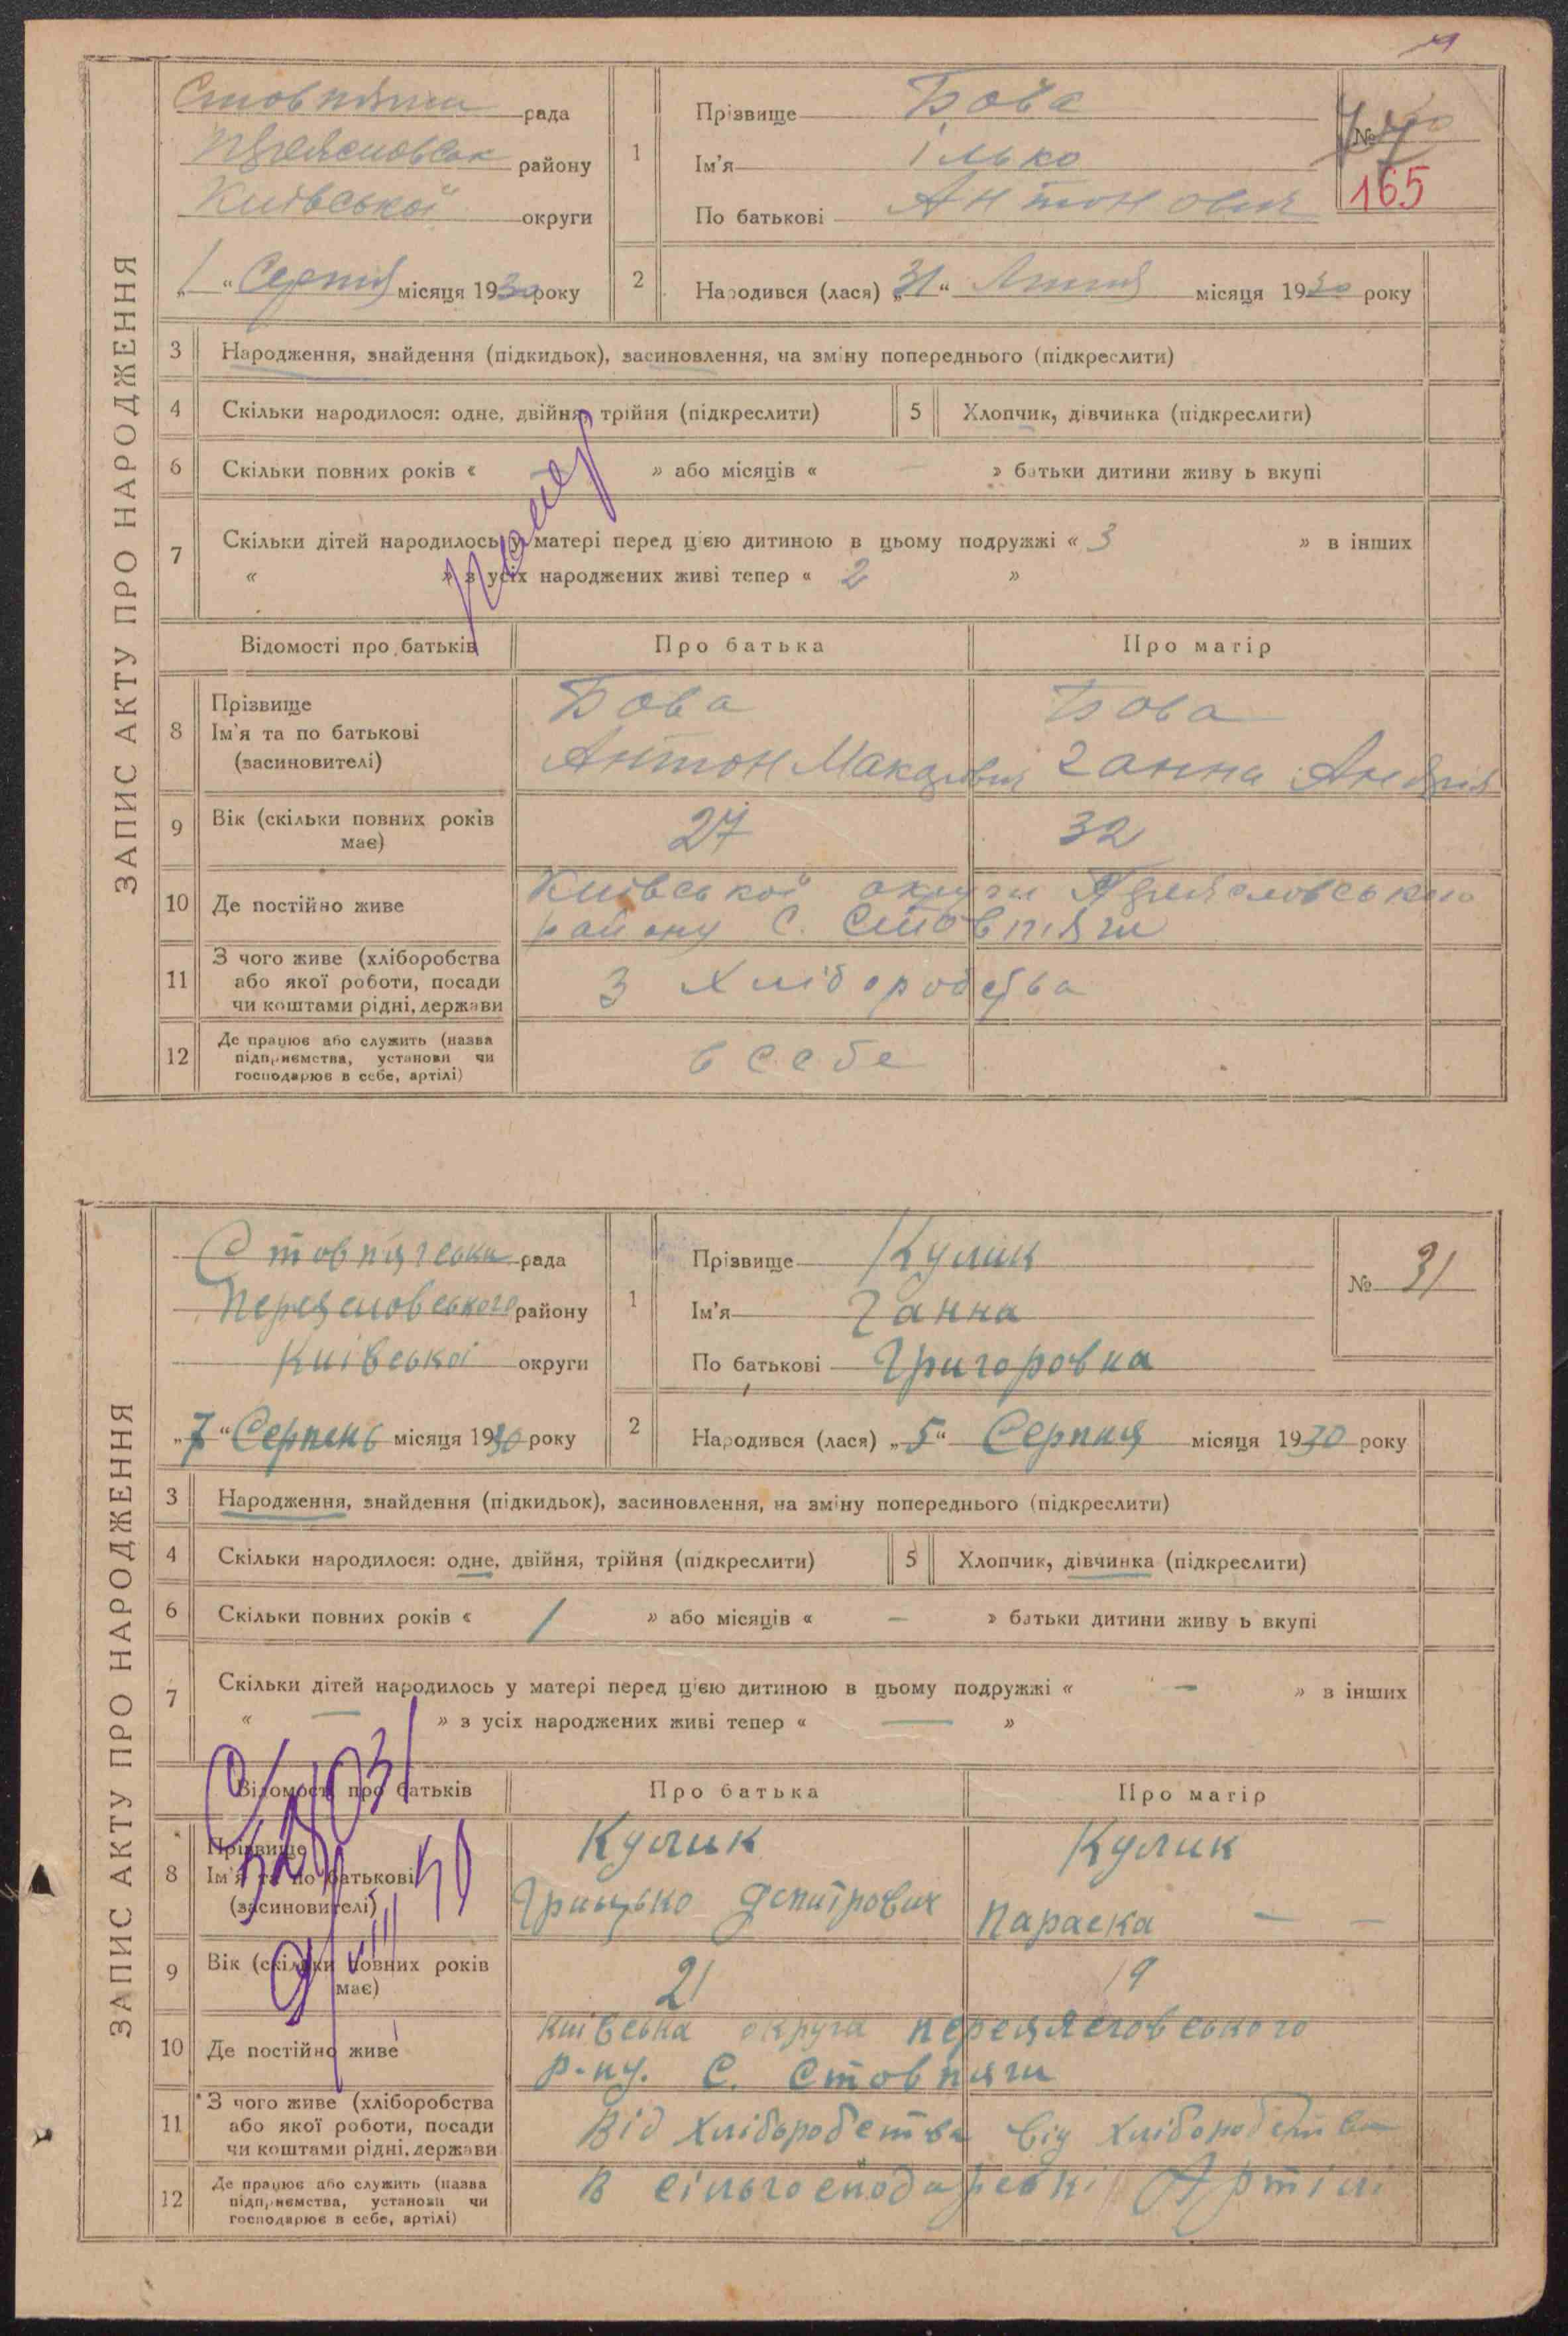 ЗАПИС АКТУ ПРО НАРОДЖЕННЯ
Стовпяги рада
району
Київської округи
„1“ Серпня місяця 1930 року
1
Прізвище Бова
Ім'я Ілько
По батькові Антонович
№
165
2 Народився (лася) „31“ Липня місяця 1930 року
3 Народження, знайдення (підкидьок), засиновлення, на зміну попереднього (підкреслити)
4 Скільки народилося: одне, двійня, трійня (підкреслити) 5 Хлопчик, дівчинка (підкреслити)
6 Скільки повних років « » або місяців « — » батьки дитини живуть вкупі
7 Скільки дітей народилось у матері перед цією дитиною в цьому подружжі « 3 » в інших
« » з усіх народжених живі тепер « 2 »
Відомості про батьків Про батька Про матір
8 Прізвище
Ім'я та по батькові
(засиновителі)
Бова Бова
Антон Макарович Ганна
9 Вік (скільки повних років
має)
27 32
10 Де постійно живе
Київської округи
району С. Стовпяги
11 З чого живе (хліборобства
або якої роботи, посади
чи коштами рідні, держави
З Хліборобства
12 Де працює або служить (назва
підприємства, установи чи
господарює в себе, артілі)
в себе
ЗАПИС АКТУ ПРО НАРОДЖЕННЯ
Стовпягська рада
Переясловського району
Київської округи
„7“ Серпень місяця 1930 року
1
Прізвище Кулик
Ім'я Ганна
По батькові Григоровна
№ 31
2 Народився (лася) „5“ Серпня місяця 1930 року
3 Народження, знайдення (підкидьок), засиновлення, на зміну попереднього (підкреслити)
4 Скільки народилося: одне, двійня, трійня (підкреслити) 5 Хлопчик, дівчинка (підкреслити)
6 Скільки повних років « 1 » або місяців « — » батьки дитини живуть вкупі
7 Скільки дітей народилось у матері перед цією дитиною в цьому подружжі « — » в інших
« — » з усіх народжених живі тепер « — »
Відомості про батьків Про батька Про матір
8 Прізвище
Ім'я та по батькові
(засиновителі)
Кулик Кулик
Грицько Параска — —
9 Вік (скільки повних років
має)
21 19
10 Де постійно живе
Київська округа
р-ну. С. Стовпяги
11 З чого живе (хліборобства
або якої роботи, посади
чи коштами рідні, держави
Від хліборобства від хліборобства
12 Де працює або служить (назва
підприємства, установи чи
господарює в себе, артілі)
В Артілі